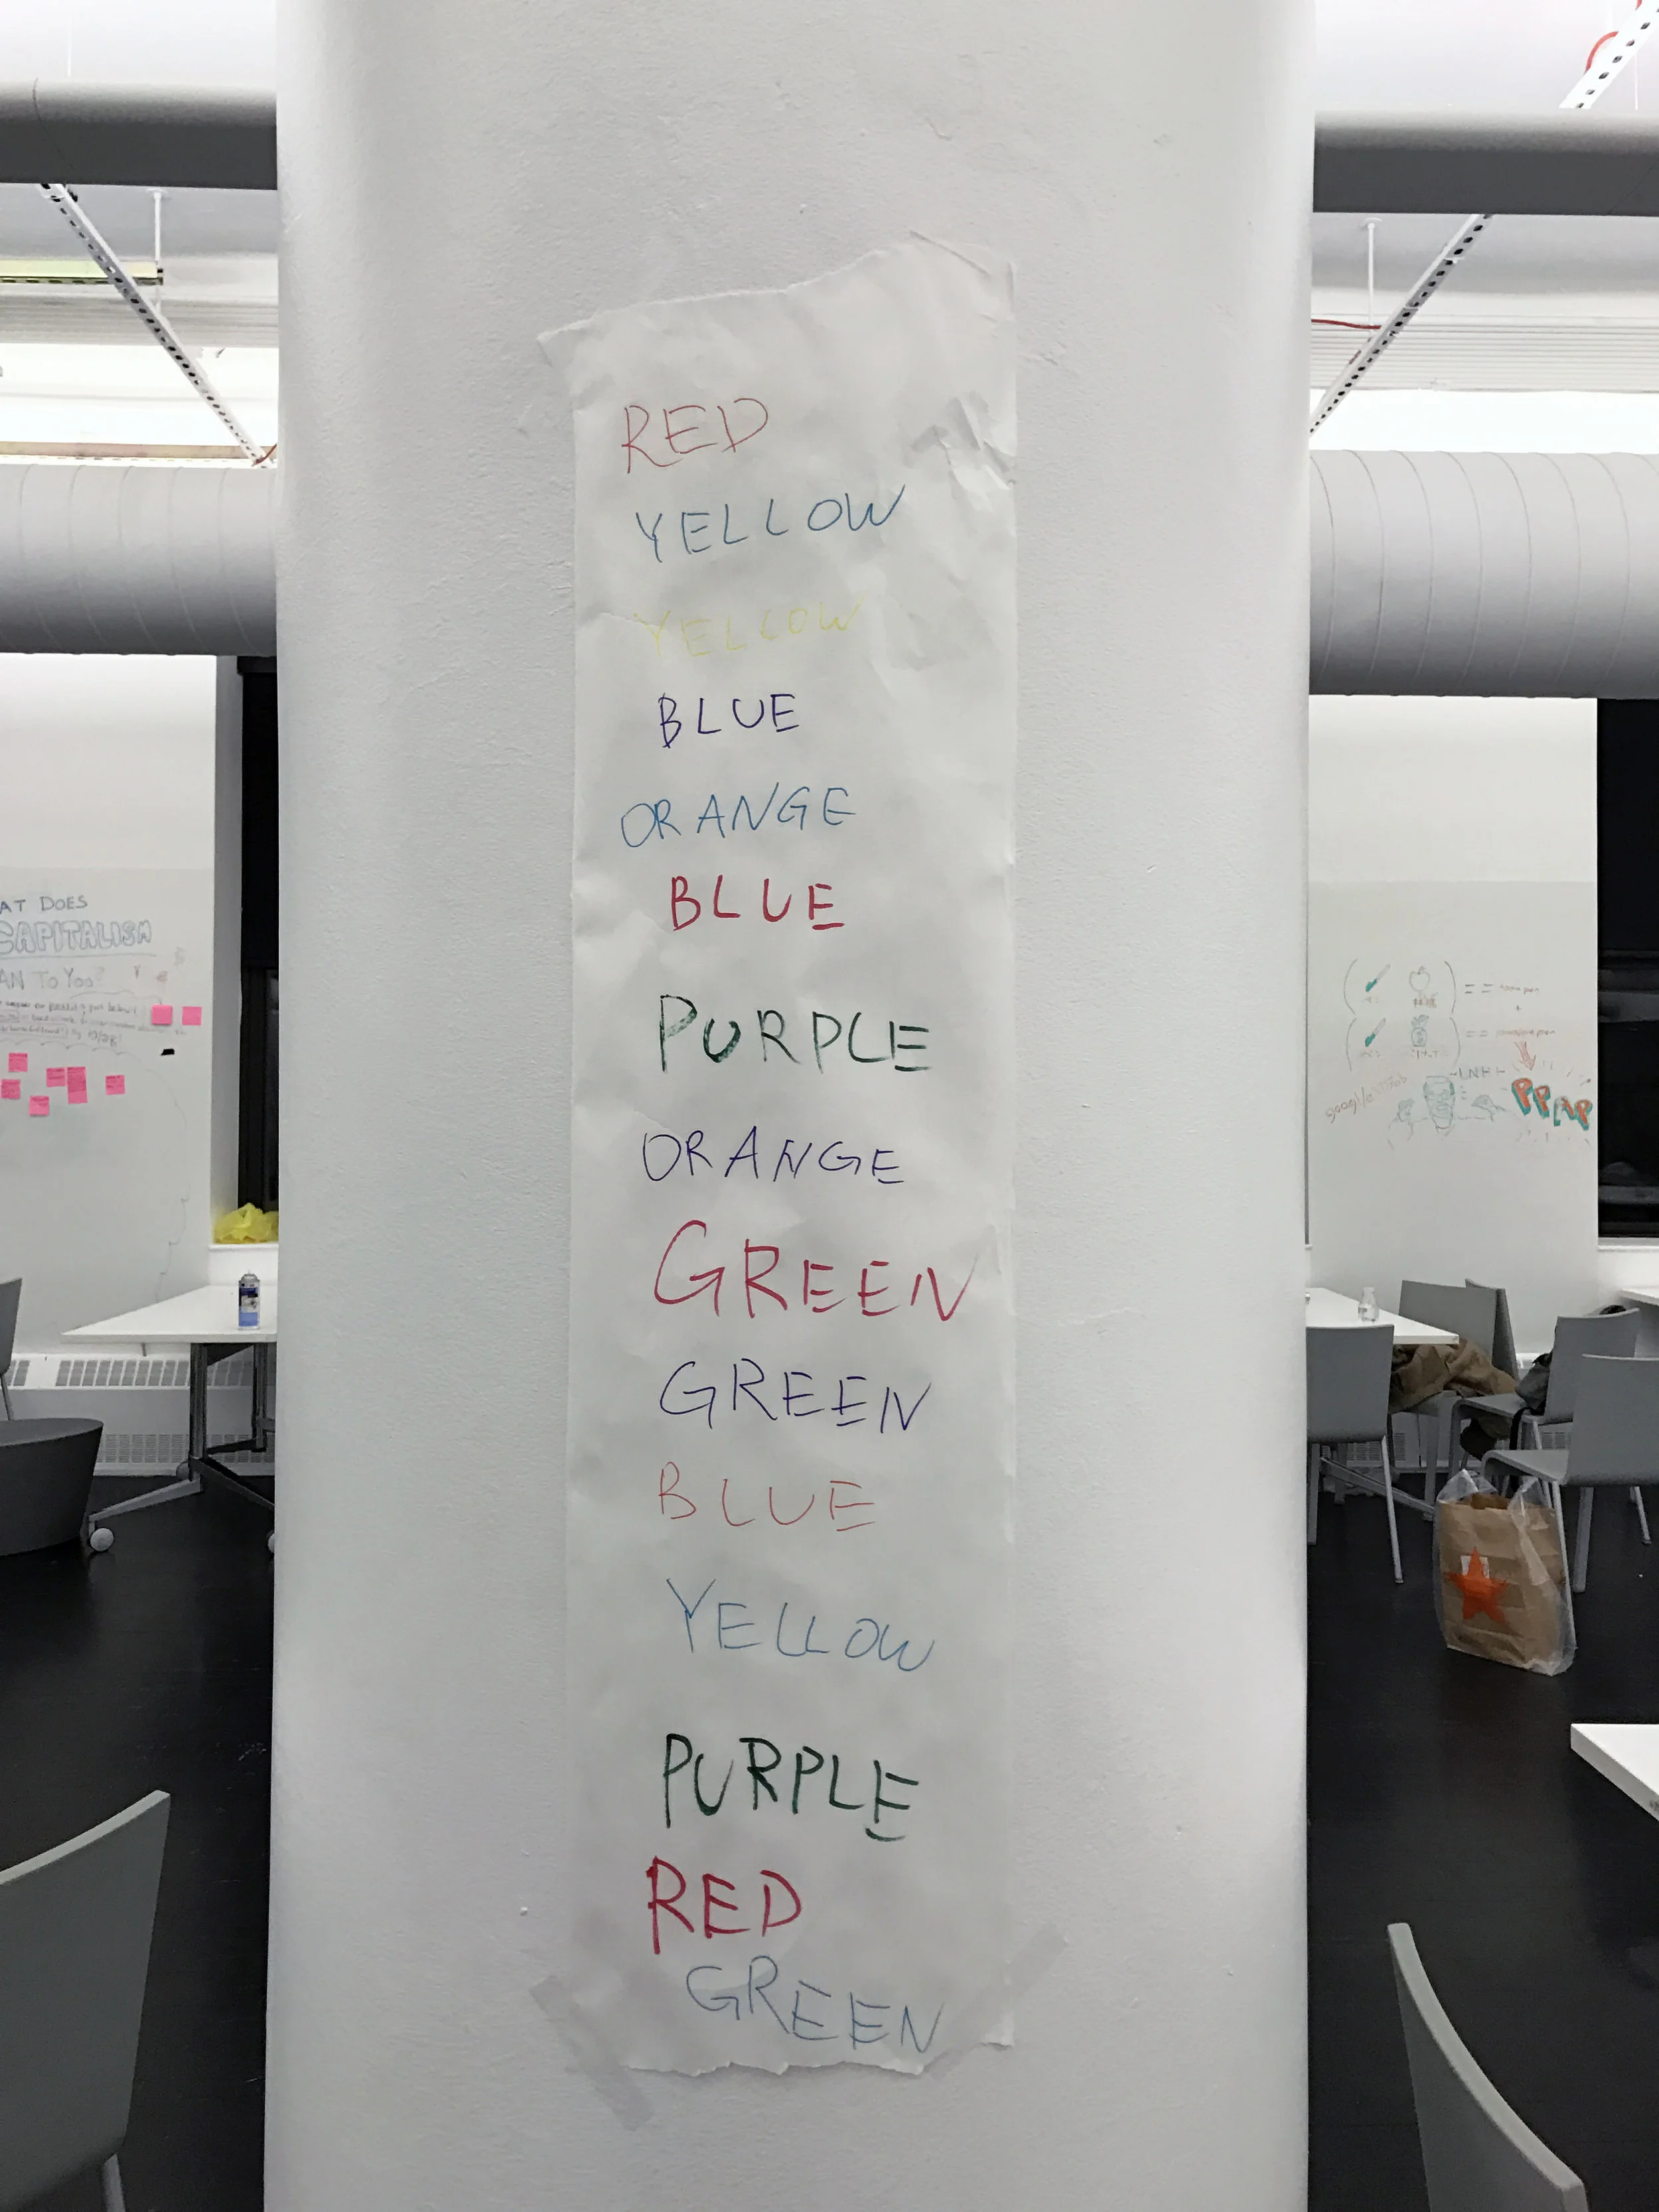 RED
YELLOW
YELLOW
BLUE
ORANGE
BLUE
PURPLE
ORANGE
GREEN
GREEN
BLUE
YELLOW
PURPLE
RED
GREEN
AT DOES
CAPITALISM
AN TO YOU?
PPAP